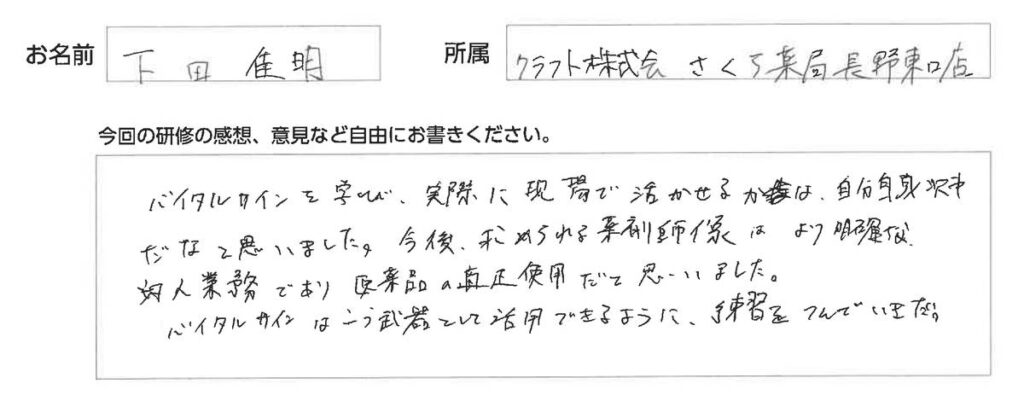 お名前 下田 隹明 所属 クラフト株式会 さくら薬局長野東口店
今回の研修の感想、意見など自由にお書きください。
バイタルサインを学び、実際に現場で活かせるかは、自分自身次才
だなと思いました。今後、求められる薬剤師像はより明確な、
対人業務であり医薬品の適正使用だと思いました。
バイタルサインはう武器として活用できるように、練習をつんでいきた。